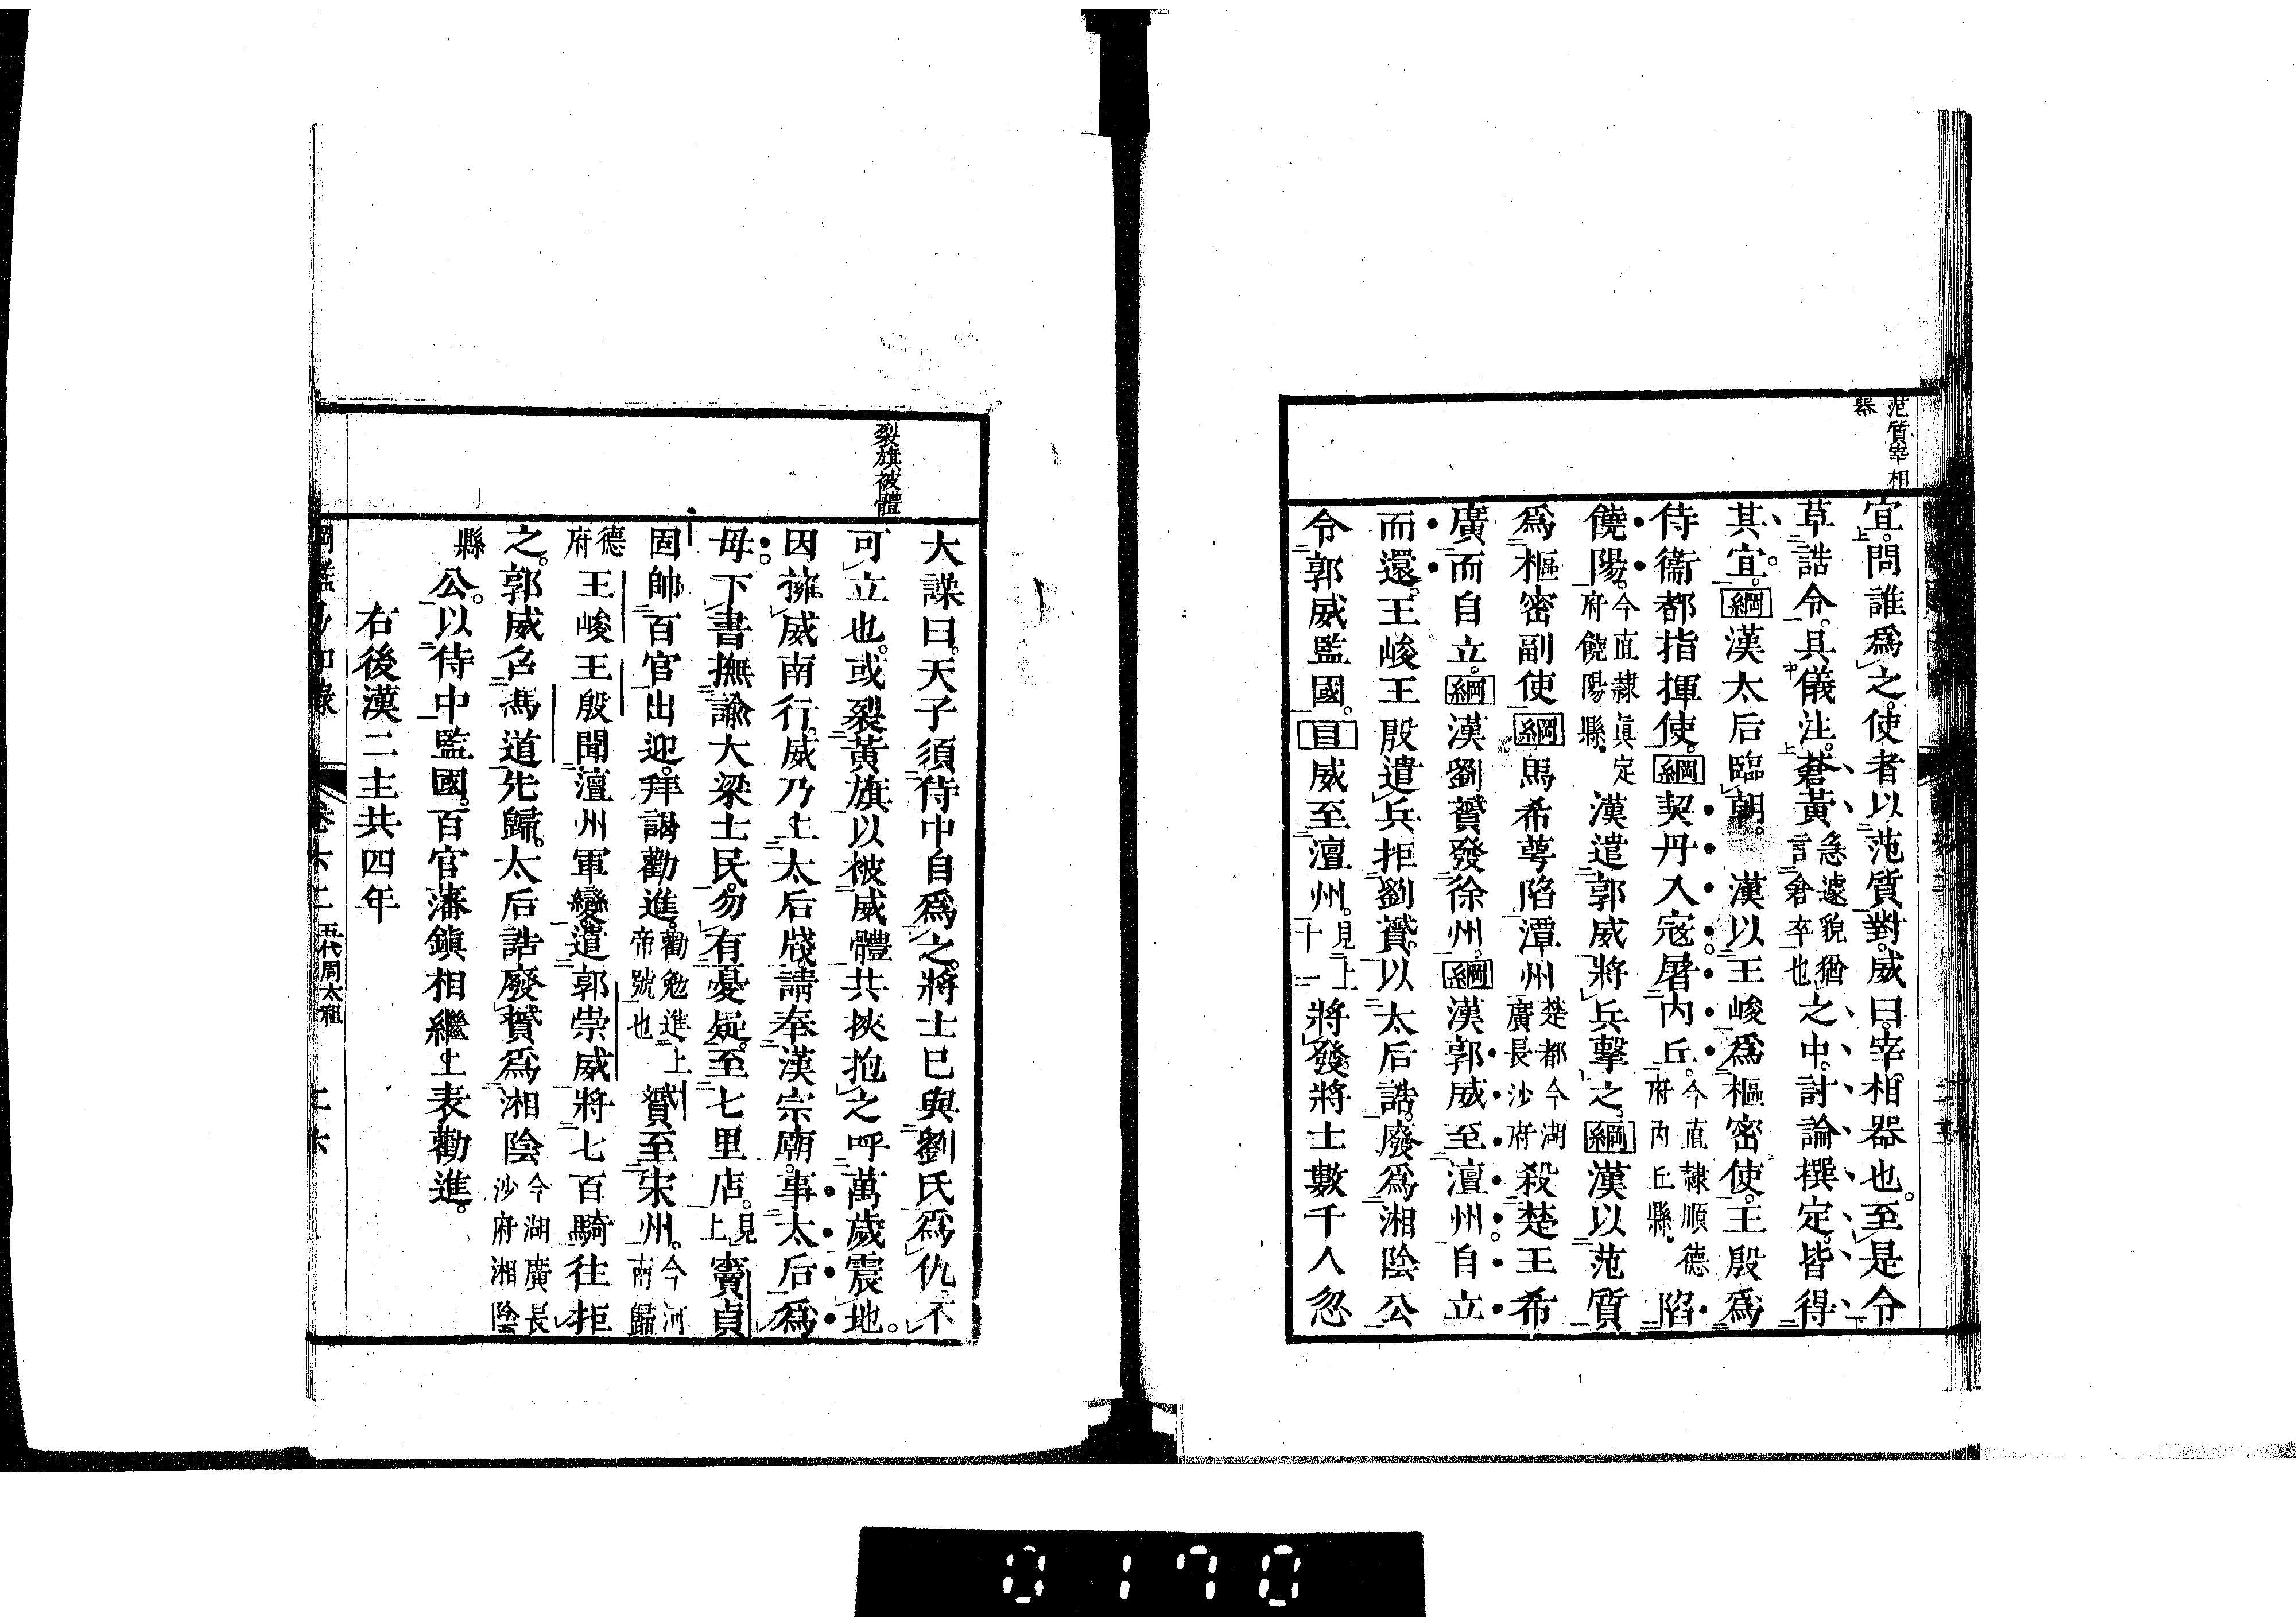 范質宰相
器
宜。問誰爲之。使者以范質對。威曰。宰相器也。至是令
草誥令。具儀注。蒼黃急遽貌猶言倉卒也之中。討論撰定。皆得
其宜。綱漢太后臨朝。漢以王峻爲樞密使。王殷爲
侍衞都指揮使。綱契丹入寇。屠內丘。今直隷順德府内丘縣。陷
饒陽。今直隷眞定府饒陽縣。漢遣郭威將兵擊之。綱漢以范質
爲樞密副使綱馬希萼陷潭州楚都今湖廣長沙府殺楚王希
廣而自立。綱漢劉贇發徐州。綱漢郭威至澶州。自立
而還。王峻王殷遣兵拒劉贇。以太后誥。廢爲湘陰公
令郭威監國。目威至澶州。見上十一將發。將士數千人忽
裂旗被體
大譟曰。天子須侍中自爲之。將士已與劉氏爲仇。不
可立也。或裂黃旗以被威體。共挾抱之。呼萬歲震地。
因擁威南行。威乃上太后牋。請奉漢宗廟。事太后爲
母。下書撫諭大梁士民。勿有憂疑。至七里店。見上竇貞
固帥百官出迎。拜謁勸進。勸勉進上帝號也贇至宋州。今河南歸
德府王峻王殷聞澶州軍變。遣郭崇威將七百騎往拒
之。郭威召馮道先歸。太后誥廢贇爲湘陰今湖廣長沙府湘陰
縣公。以侍中監國。百官藩鎭相繼上表勸進。
右後漢二主共四年
五代周太祖
0170